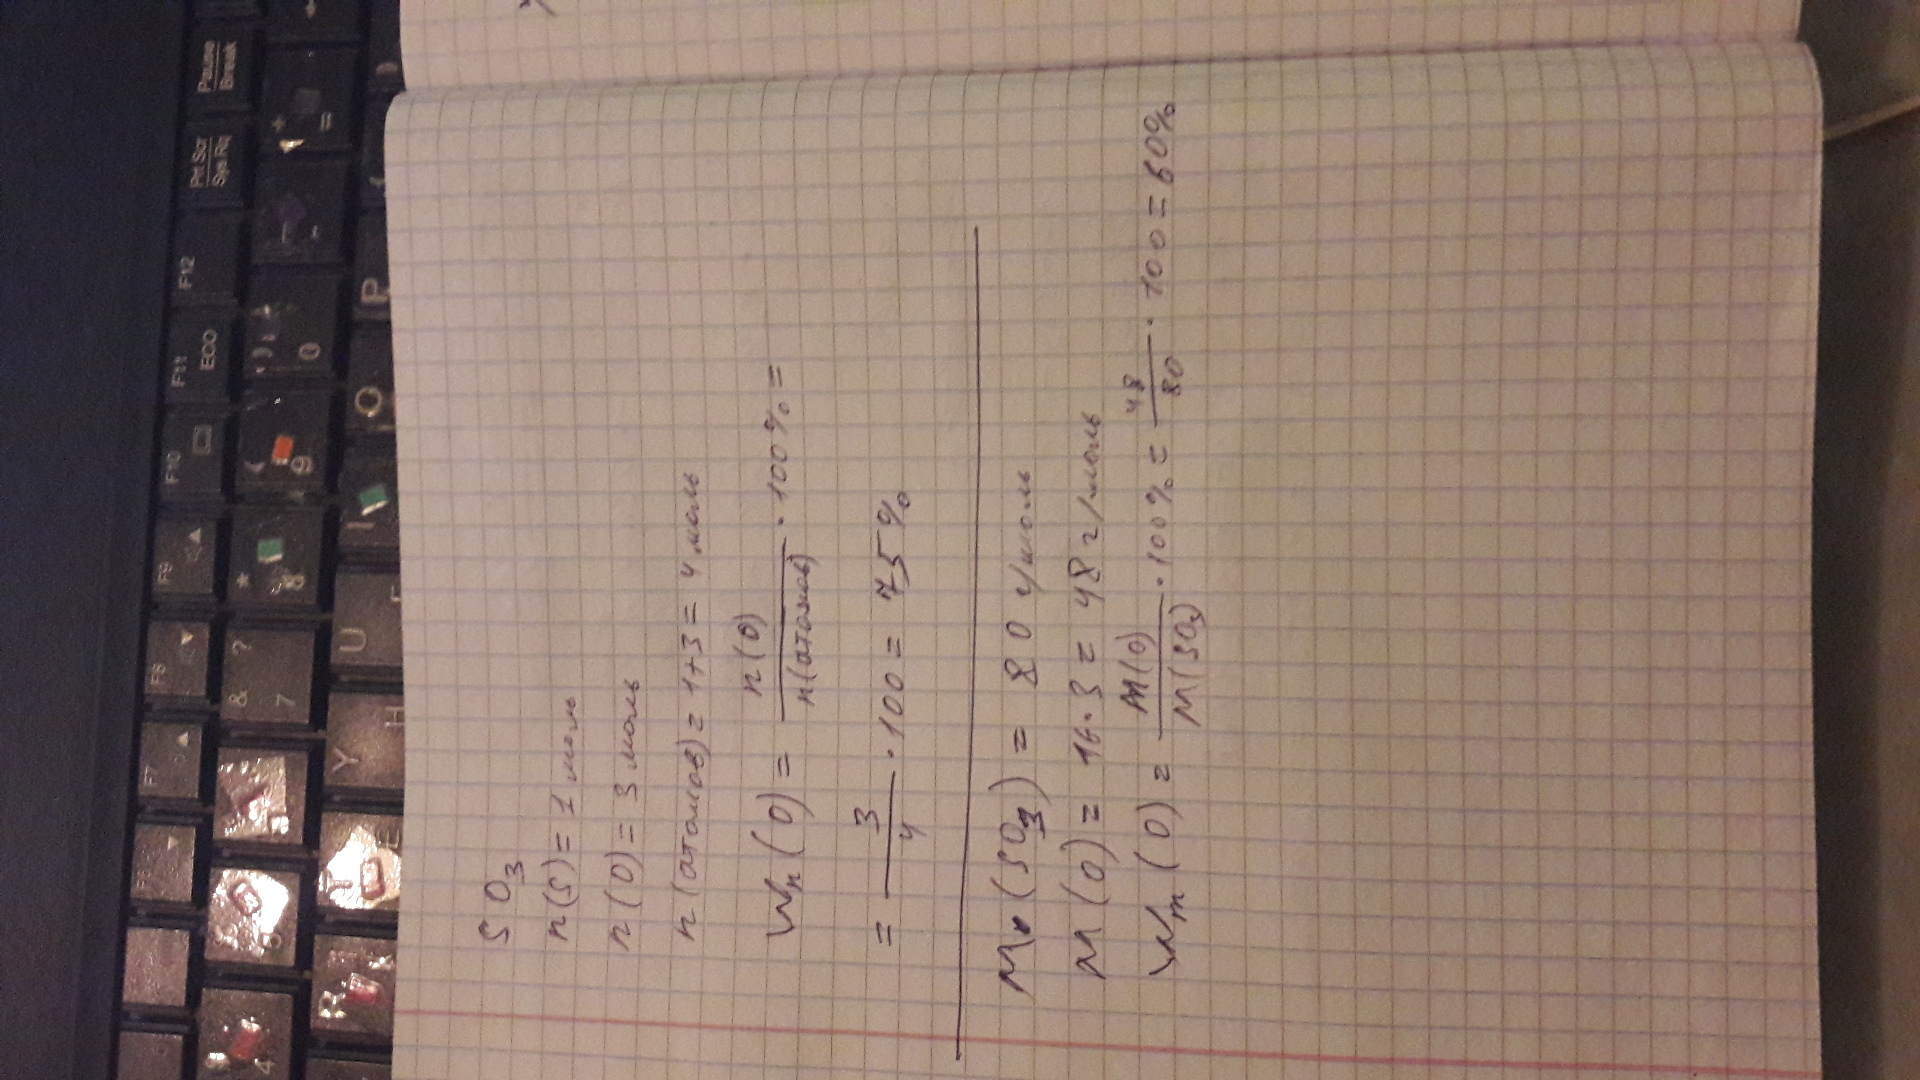 SO3
n(S) = 1 моль
n(O) = 3 моль
n(атомов) = 1+3 = 4 моль
Wn(O) = n(O) / n(атомов) · 100% =
= 3/4 · 100 = 75%
M(SO3) = 80 г/моль
M(O) = 16·3 = 48 г/моль
Wm(O) = M(O) / M(SO3) · 100% = 48/80 · 100 = 60%
Pause Break
Prt Scr Sys Rq
F12
F11 ECO
F10
F9
F8
F7
+ =
_ -
) 0
( 9
* 8
& ? 7
6
5
4
P
O
I
U
Y Н
T Е
R